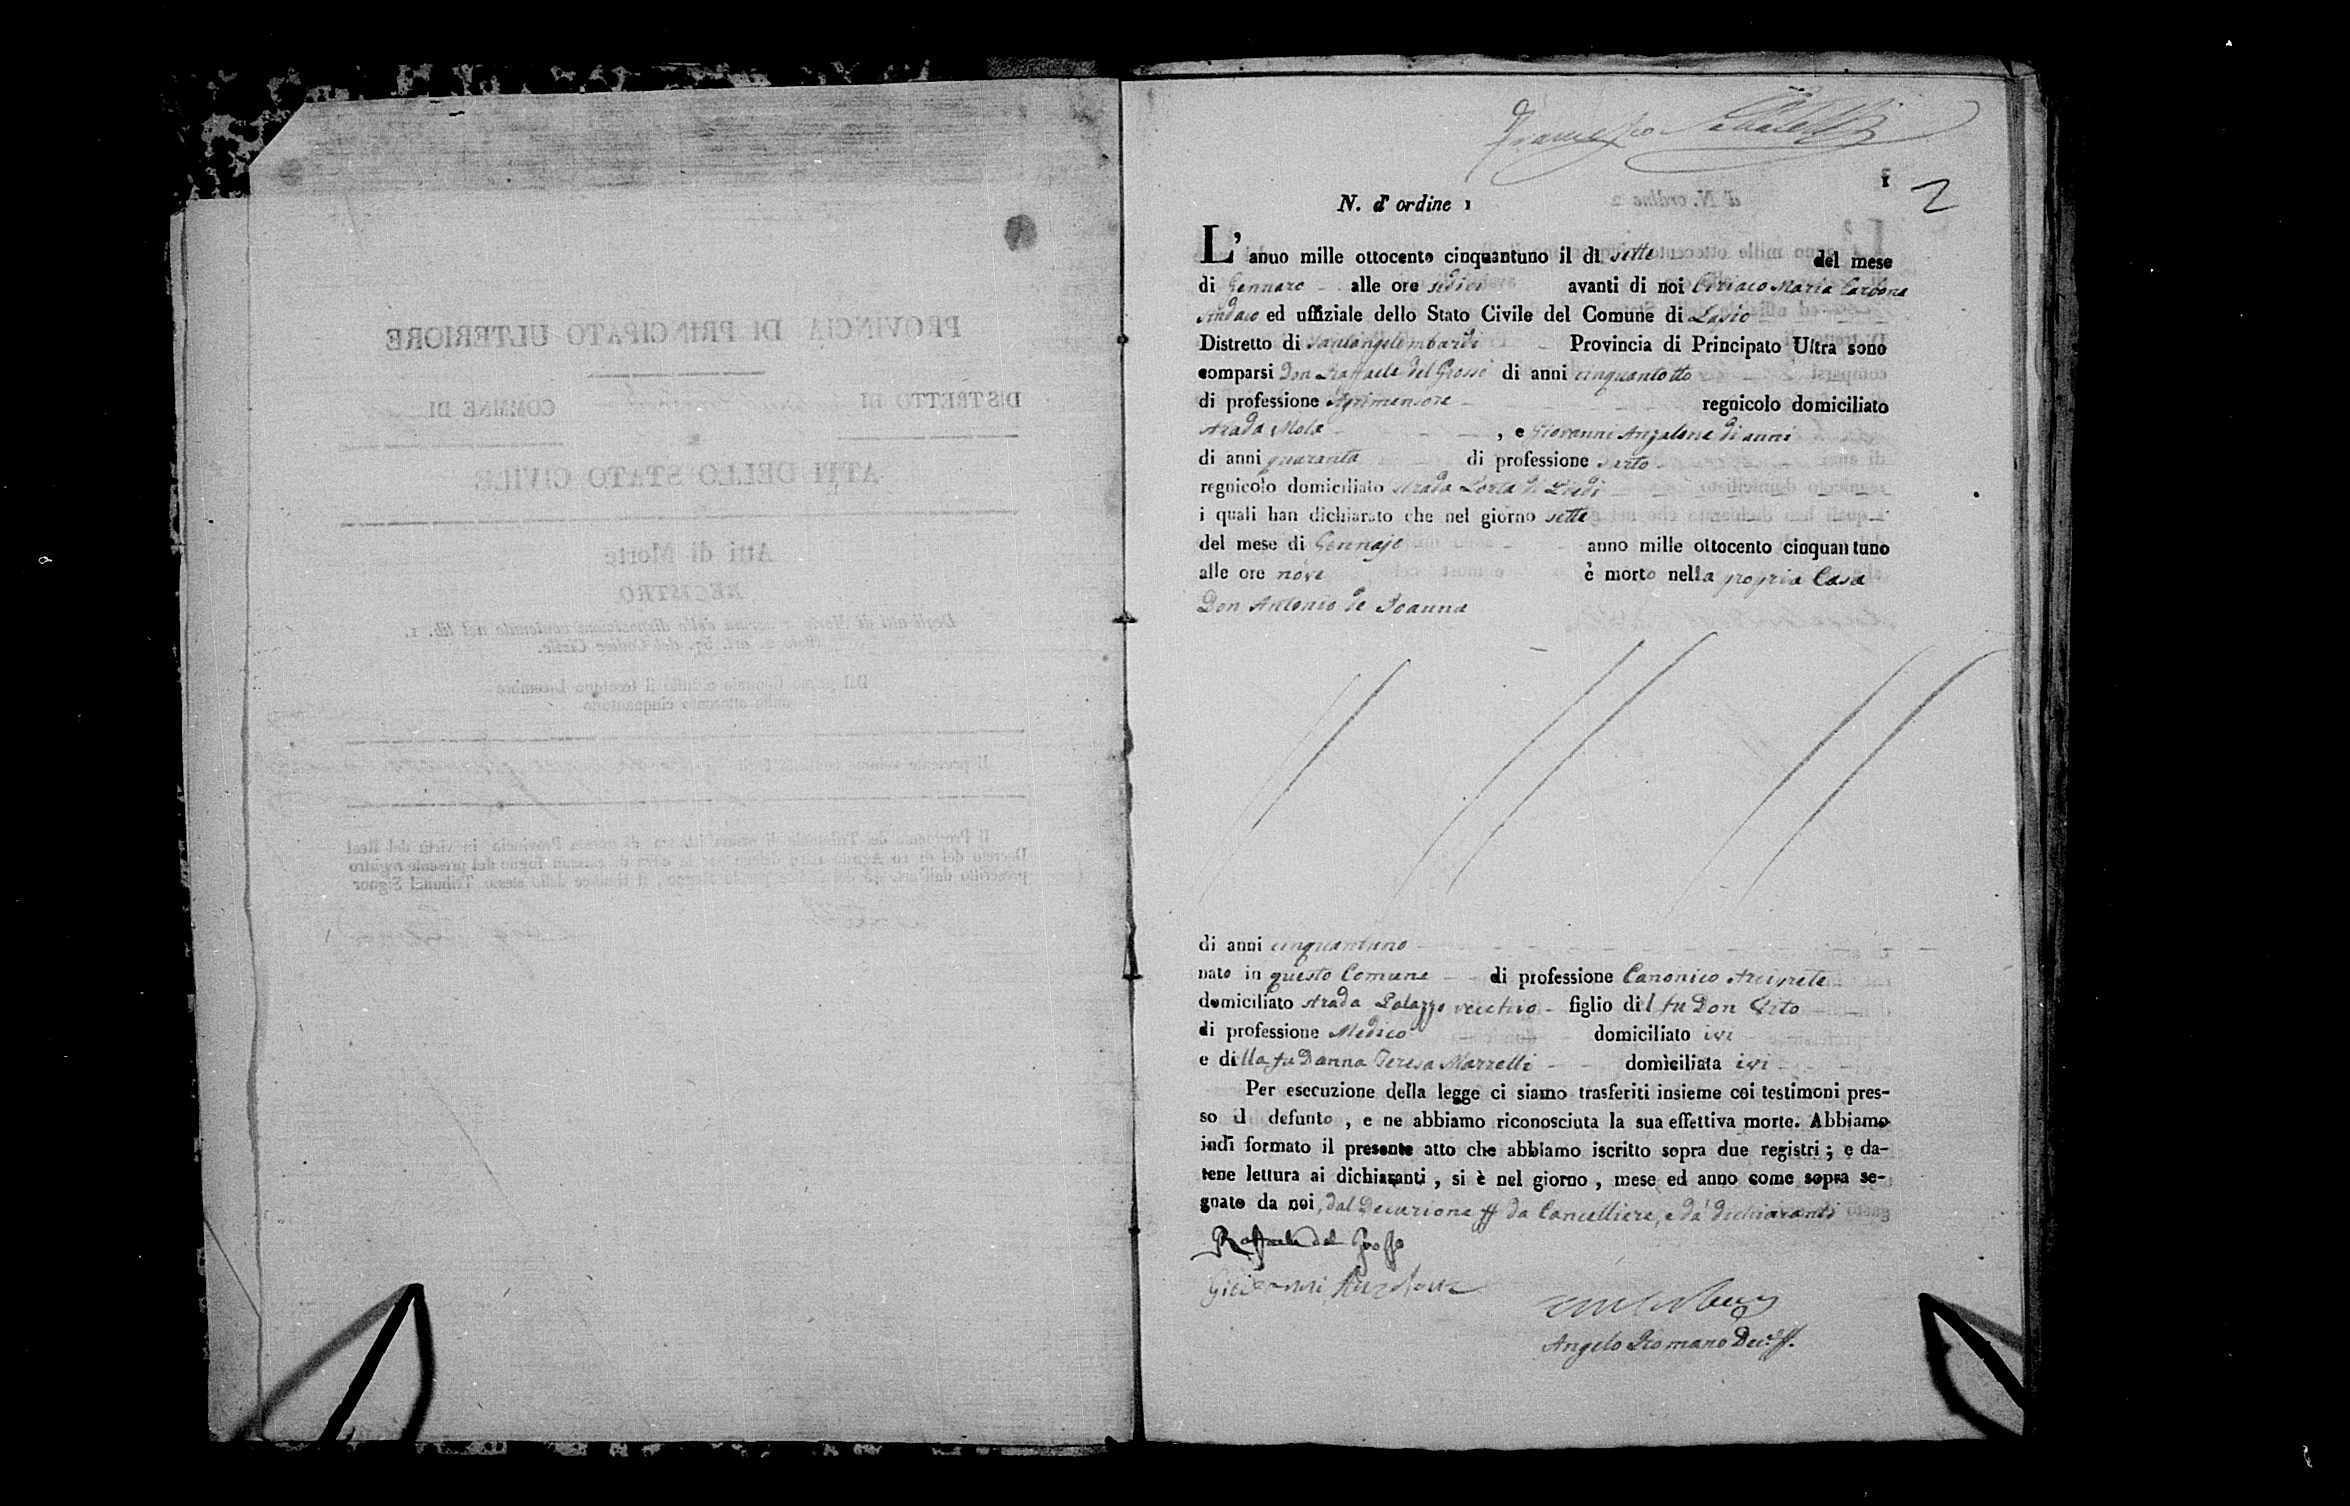 2
1
N. d' ordine 1
L' anno mille ottocento cinquantuno il dì sette del mese
di Gennaro alle ore sedici avanti di noi Ciriaco Maria Carbone
Sindaco ed uffiziale dello Stato Civile del Comune di
Distretto di Santangelombardi Provincia di Principato Ultra sono
comparsi Don Raffaele del Grosso di anni cinquantotto
di professione Agrimensore regnicolo domiciliato
strada Mola , e Giovanni Anzalone di anni
di anni quaranta di professione sarto
regnicolo domiciliato strada Porta di Piedi
i quali han dichiarato che nel giorno sette
del mese di Gennajo anno mille ottocento cinquantuno
alle ore nove è morto nella propria Casa
Don Antonio de Joanna
di anni cinquantuno
nato in questo Comune di professione Canonico Arciprete
domiciliato strada Palazzo vecchio figlio del fu Don Vito
di professione Medico domiciliato ivi
e della fu Donna Teresa Marzelli domiciliata ivi
Per esecuzione della legge ci siamo trasferiti insieme coi testimoni pres-
so il defunto , e ne abbiamo riconosciuta la sua effettiva morte. Abbiamo
indi formato il presente atto che abbiamo iscritto sopra due registri ; e da-
tene lettura ai dichiaranti , si è nel giorno , mese ed anno come sopra se-
gnato da noi, dal Decurione ff da Cancelliere, e da' dichiaranti
Raffaele del Grosso
Giovanni Anzalone
Angelo Romano Dec.e ff.
PROVINCIA DI PRINCIPATO ULTERIORE
DISTRETTO DI COMUNE DI
ATTI DELLO STATO CIVILE
Atti di Morte
REGISTRO